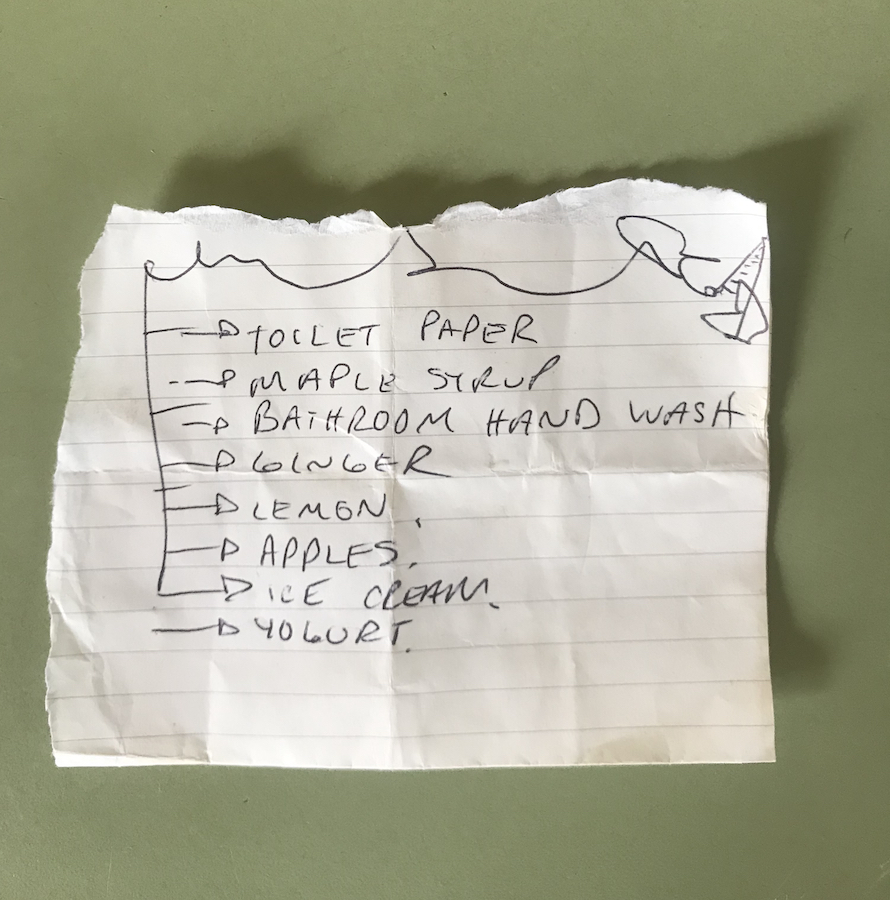 TOILET PAPER
MAPLE SYRUP
BATHROOM HAND WASH
GINGER
LEMON.
APPLES.
ICE CREAM.
YOGURT.